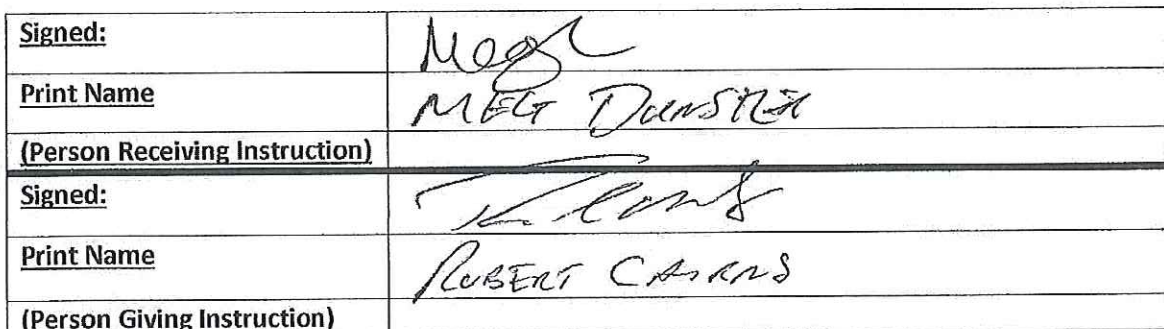 Signed: Meg
Print Name MEG DUNSTER
(Person Receiving Instruction)
Signed:
Print Name ROBERT CAIRNS
(Person Giving Instruction)